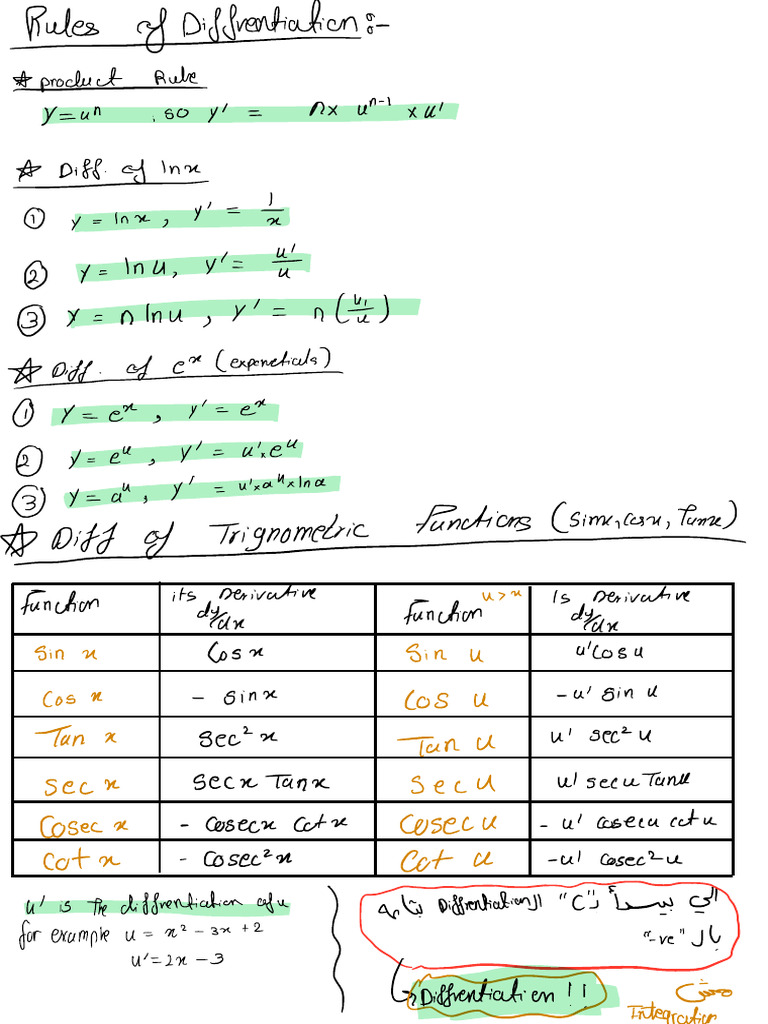 Rules of Diffrentiation:-
☆ product Rule
y = uⁿ , so y' = n × uⁿ⁻¹ × u'
☆ Diff. of ln x
① y = ln x , y' = 1/x
② y = ln u , y' = u'/u
③ y = n ln u , y' = n (u'/u)
☆ Diff. of eˣ (exponeticals)
① y = eˣ , y' = eˣ
② y = eᵘ , y' = u' × eᵘ
③ y = aᵘ , y' = u' × aᵘ × ln a
☆ Diff of Trignometric Functions (sinx, cosx, Tanx)
Function its Derivative dy/dx Function u > x Is Derivative dy/dx
Sin x Cos x Sin u u' Cos u
Cos x - sin x Cos u - u' sin u
Tan x sec² x Tan u u' sec² u
sec x sec x Tan x Sec u u' sec u Tan u
Cosec x - cosec x cot x Cosec u - u' cosec u cot u
cot x - cosec² x Cot u - u' cosec² u
u' is the diffrentiation of u
for example u = x² - 3x + 2
u' = 2x - 3
الي بيبدأ بـ "C" الـ Diffrentiation بتاعه
بالـ "-ve"
Diffrentiation !!
مش
Integration